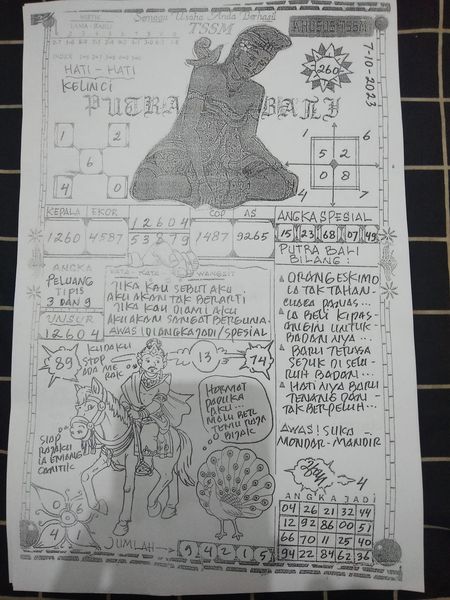 Semoga Usaha Anda Berhasil
TSSM
7-10-2023
260
HATI - HATI
KELINCI
PUTRA BALI
1 2
6
4 0
1 6
5 2
0 8
4 7
KEPALA EKOR
1260 4587
12604
53879
COP AS
1487 9265
ANGKA SPESIAL
15 23 68 07 49
ANGKA
PELUANG
TIPIS
3 DAN 9
UNSUR
12604
KATA - KATA WANGSIT
JIKA KAU SEBUT AKU
AKU AKAN TAK BERARTI
JIKA KAU DIAMI AKU
AKU AKAN SANGAT BERGUNA
AWAS DIANGKA JADI/SPESIAL
PUTRA BALI
BILANG :
ORANG ESKIMO
IA TAK TAHAN
IA BELI KIPAS
ANGIN UNTUK
BADANNYA...
BARU TERASA
SEJUK DI SELU
RUH BADAN...
HATINYA BARU
TENANG DAN
TAK BERPELUH...
AWAS! SUKA
MONDAR-MANDIR
89
KUDAKU
STOP
ADA ME
RAK
13
74
HORMAT
PADUKA
AKU...
MALU BER
TEMU RAJA
BIJAK
SIAP
RAJAKU
IA EMANG
CANTIK
6
4 1
JUMLAH 94215
4
ANGKA JADI
04 26 21 32 44
12 92 86 00 51
66 70 11 25 40
94 22 84 62 36